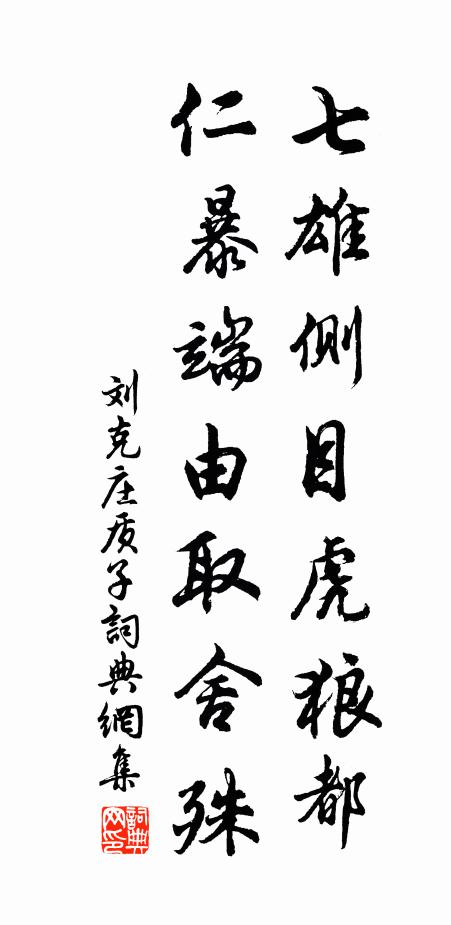 七雄側目虎狼都
仁暴端由取舍殊
刘克庄质子詞典網集
詞典网印